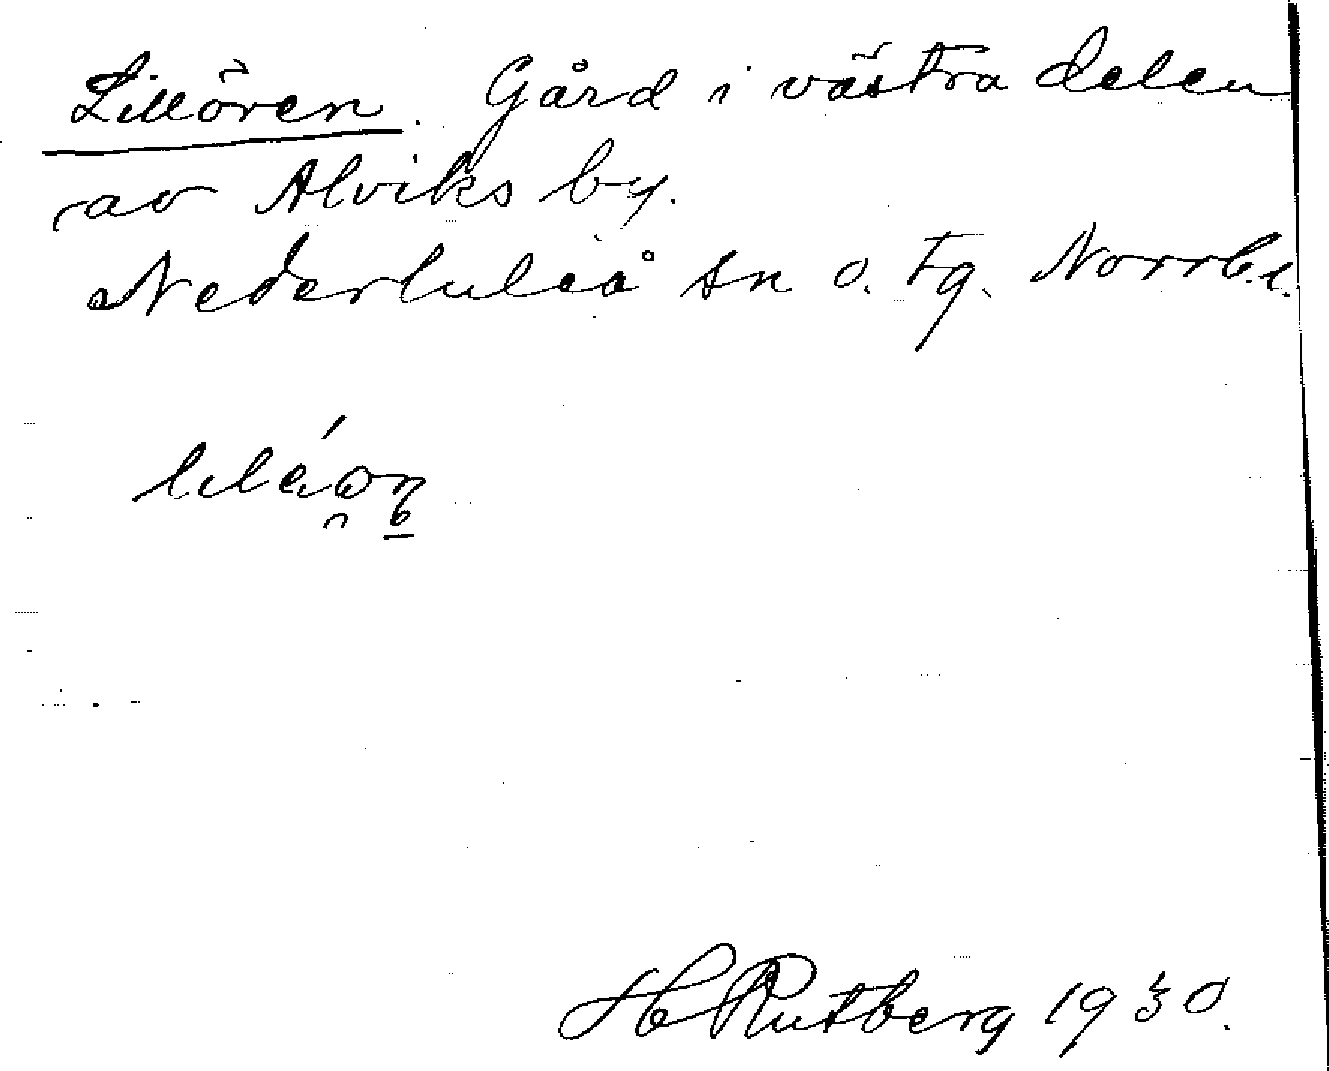 Lillören. Gård i västra delen
av Alviks by.
Nederluleå sn o. tg. Norrb. l.
H Rutberg 1930.